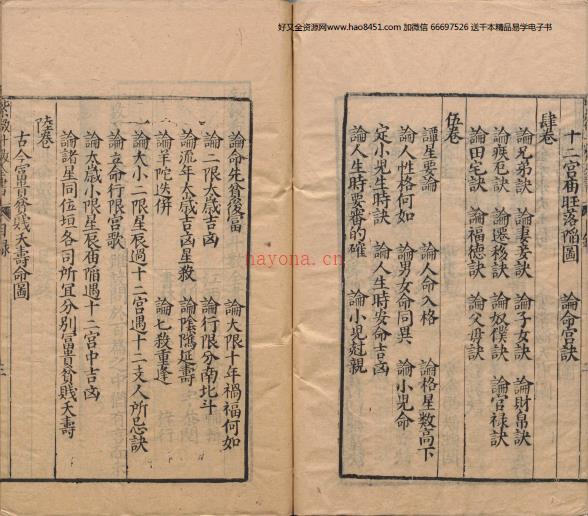 好又全资源网www.hao8451.com 加微信 66697526 送千本精品易学电子书
十二宮廟旺落陷圖 論命宮訣
肆卷
論兄弟訣 論妻妾訣 論子女訣 論財帛訣
論疾厄訣 論遷移訣 論奴僕訣 論官祿訣
論田宅訣 論福德訣 論父母訣
伍卷
譚星要論 論人命入格 論格星數高下
論人性格何如 論男女命同異 論小兒命
定小兒生時訣 論人生時安命吉凶
論人生時要審的確 論小兒尅親
論命先貧後富 論大限十年禍福何如
論二限太歲吉凶 論行限分南北斗
論流年太歲吉凶星殺 論陰隲延壽
論羊陀迭併 論七殺重逢
論大小二限星辰過十二宮遇十二支人所忌訣
論立命行限宮歌
論太歲小限星辰廟陷遇十二宮中吉凶
論諸星同位垣各司所宜分別富貴貧賤夭壽
陸卷
古今富貴貧賤夭壽命圖
目錄
三
hayona.cn